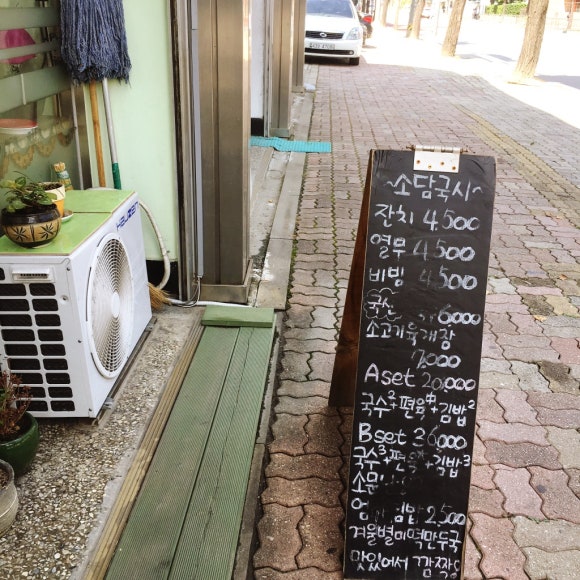 HAUZEN
~소담국시~
잔치 4,500
열무 4,500
비빔 4,500
6,000
소고기육개장
7,000
A set 20,000
국수2+편육中+김밥2
B set 26,000
국수3+편육+김밥3
2,500
겨울별미떡만두국
맛있어서 깜짝